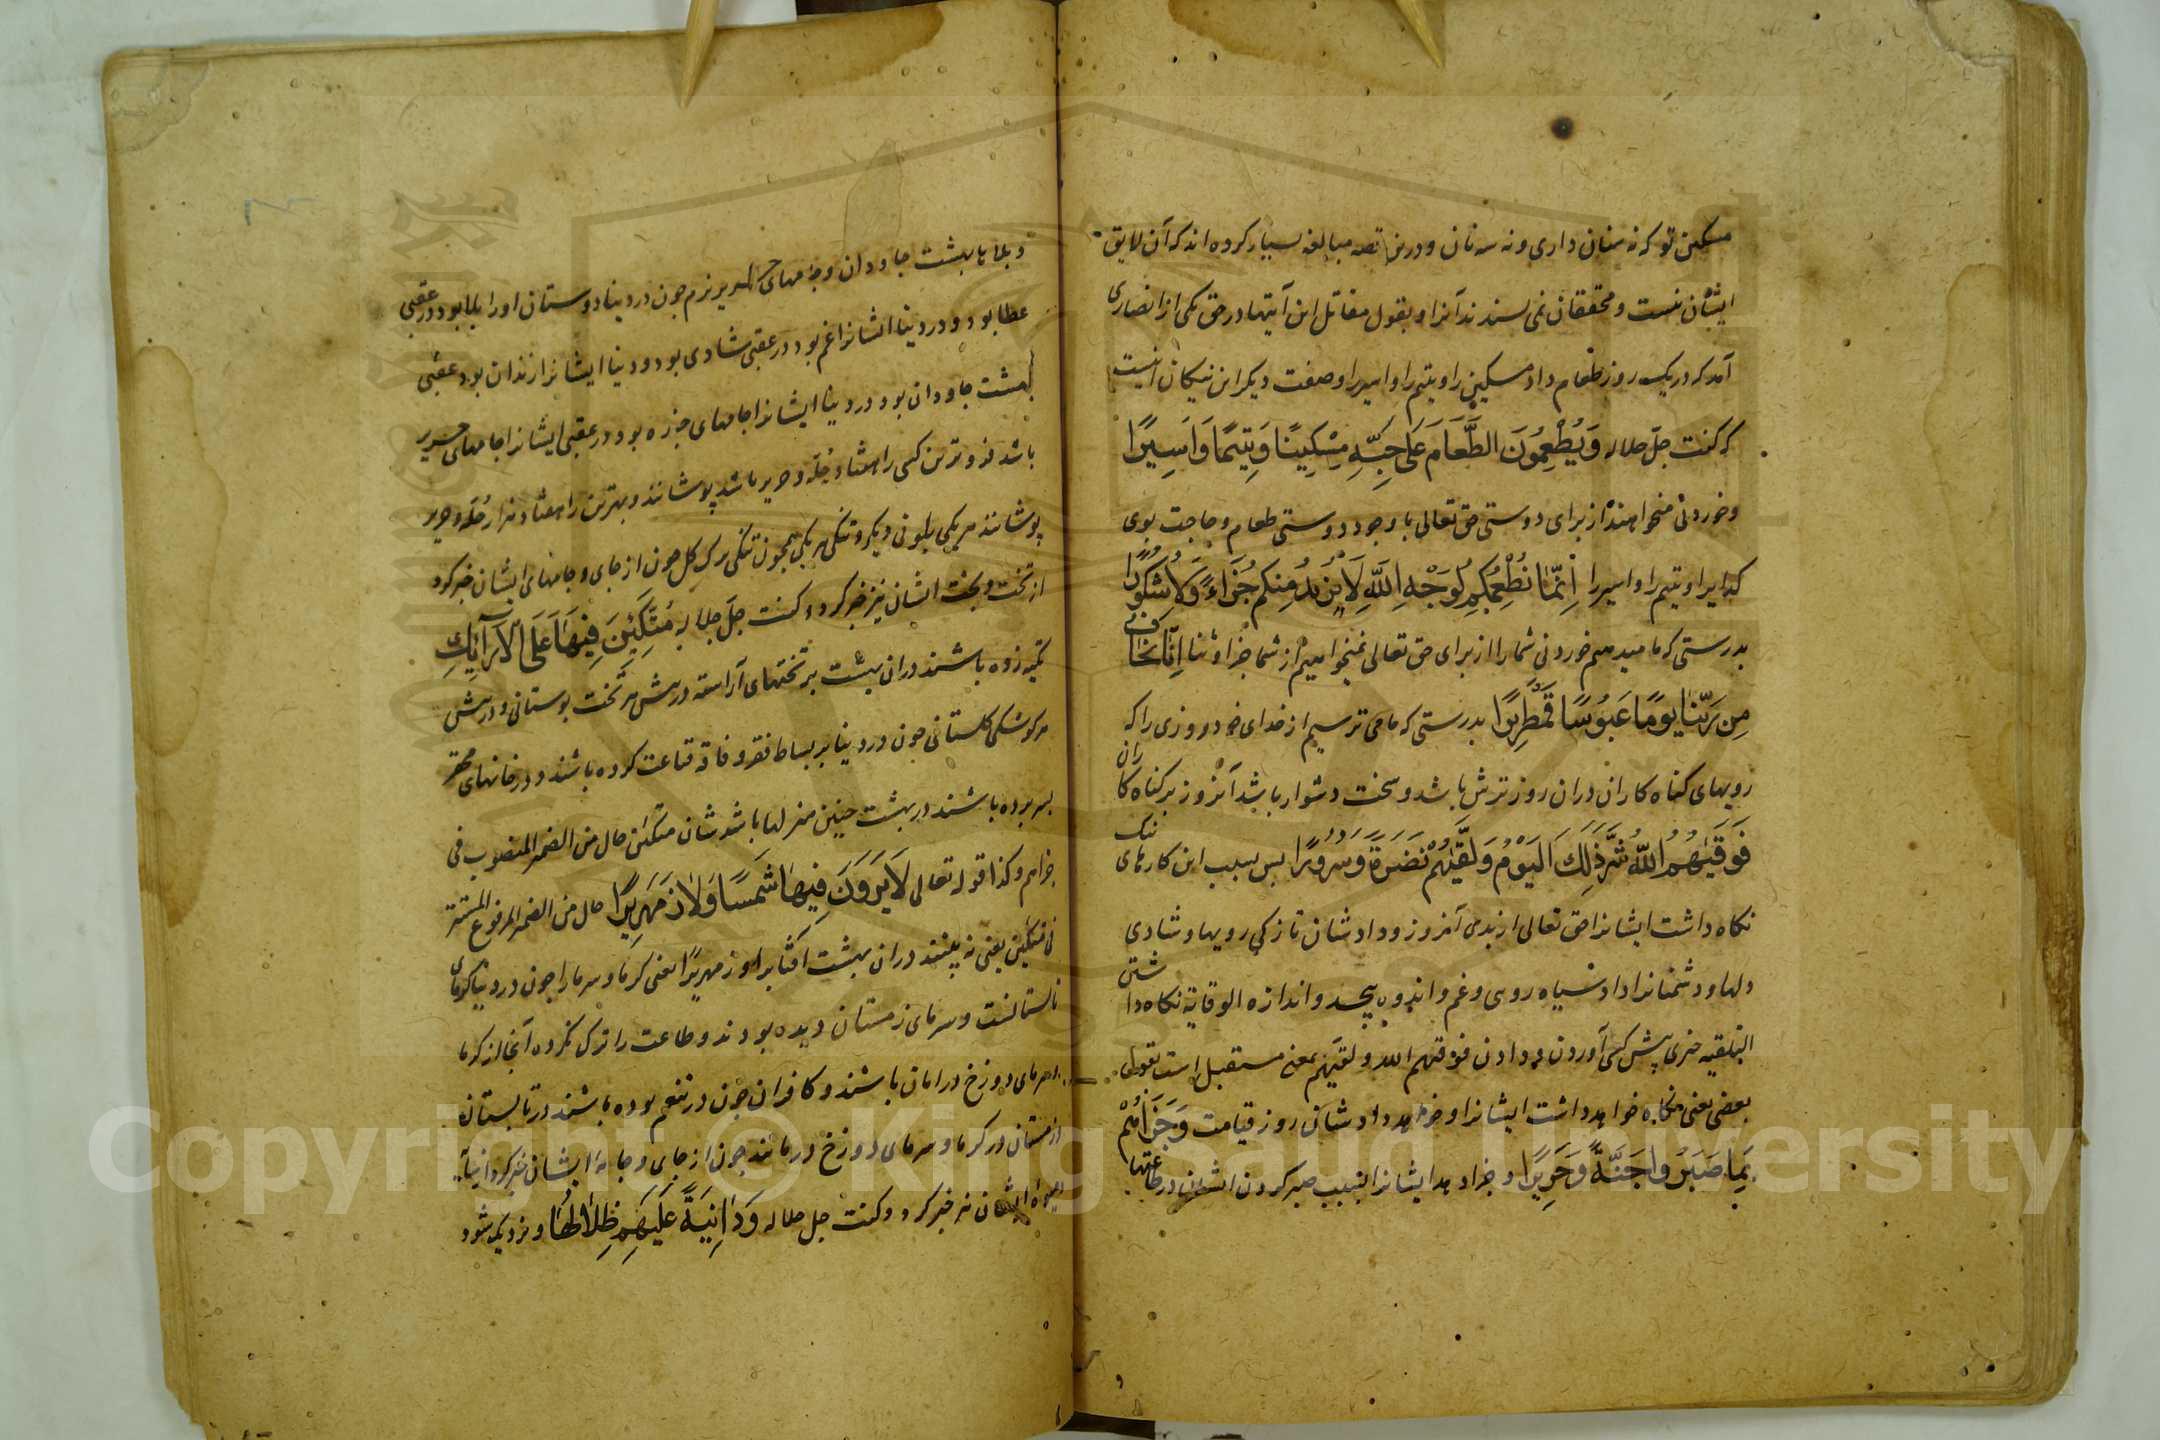 مسکین تو که نه سنان داری و نه سه نان و درین قصه مبالغه بسیار کرده اند که آن لایق
ایشان نیست و محققان نمی پسندند آنرا و بقول مقاتل این آیتها در حق یکی از انصاری
آمد که در یک روز طعام داد مسکین را و یتیم را و اسیر را و صفت دیگر این نیکان اینست
که گفت جل جلاله وَيُطْعِمُونَ الطَّعَامَ عَلَى حُبِّهِ مِسْكِينًا وَيَتِيمًا وَاَسِيرًا
و خوردنی میخواهند از برای دوستی حق تعالی با وجود دوستی طعام و حاجت بوی
گدایرا و یتیم را و اسیر را اِنَّمَا نُطْعِمُكُمْ لِوَجْهِ اللَّهِ لَا نُرِيدُ مِنكُمْ جَزَاءً وَلَا شُكُورًا
بدرستی که ما میدهیم خوردنی شما را از برای حق تعالی نمیخواهیم از شما جزا و ثنا اِنَّا نَخَافُ
مِن رَبِّنَا يَوْمًا عَبُوسًا قَمْطَرِيرًا بدرستی که ما می ترسیم از خدای خود روزی را که
رویهای گناه کاران دران روز ترش باشد و سخت دشوار باشد آنروز بر گناه کاران
فَوَقٰيهُمُ اللَّهُ شَرَّ ذَلِكَ الْيَوْمِ وَلَقّٰيهُمْ نَضْرَةً وَسُرُورًا پس بسبب این کارهای نیک
نگاه داشت ایشانرا حق تعالی از بدی آنروز و دادشان تازکی رویها و شادی
دلها و دشمنانرا داد سیاه روی و غم و اندوه بیحد و اندازه الوقایة نگاه داشتن
التلقیه چیزی پیش کسی آوردن و دادن فوقیهم الله و لقیهم بمعنی مستقبل است بقول
بعضی یعنی نگاه خواهد داشت ایشانرا و خواهد دادشان روز قیامت وَجَزٰيهُمْ
بِمَا صَبَرُوا جَنَّةً وَحَرِيرًا و جزا دهد ایشانرا بسبب صبر کردن ایشان در طاعتها
و بلاها بهشت جاودان و جامهای حریر نرم چون در دنیا دوستان او را بلا بود در عقبی
عطا بود و در دنیا ایشانرا غم بود در عقبی شادی بود و دنیا ایشانرا زندان بود عقبی
بهشت جاودان بود در دنیا ایشانرا جامهای خژه بود در عقبی ایشانرا جامهای حریر
باشد فروترین کسی را هفتاد حُلّه و حریر باشد پوشانند و بهترین را هفتاد هزار حُلّه و حریر
پوشانند هر یکی بلونی دیگر و تنکی هر یکی همچون تنکی برک گل چون از جای و جامهای ایشان خبر کرد
از تخت و بخت ایشان نیز خبر کرد و گفت جل جلاله مُتَّكِئِينَ فِيهَا عَلَى الْاَرَآئِكِ
تکیه زده باشند دران بهشت بر تختهای آراسته در پیش هر تخت بوستانی و در پیش
هر کوشکی گلستانی چون در دنیا بر بساط فقر و فاقه قناعت کرده باشند و در خانهای محقر
بسر برده باشند در بهشت چنین منزلها باشدشان متکئین حال من الضمیر المنصوب فی
جزاهم و کذا قوله تعالی لَا يَرَوْنَ فِيهَا شَمْسًا وَلَا زَمْهَرِيرًا حال من الضمیر المرفوع المستتر
فی متکئین یعنی نه بینند دران بهشت آفتابرا و زمهریرا یعنی گرما و سرما را چون در دنیا گرمای
تابستانست و سرمای زمستان دیده بودند و طاعت را ترک نکرده آنجا از گرما
و سرمای دوزخ در امان باشند و کافران چون در تنعم بوده باشند در تابستان
و زمستان در گرما و سرمای دوزخ در مانند چون از جای و جامه ایشان خبر کرد
ایشان نیز خبر کرد و گفت جل جلاله وَدَانِيَةً عَلَيْهِمْ ظِلَالُهَا و نزدیک شود
Copyright © King Saud University